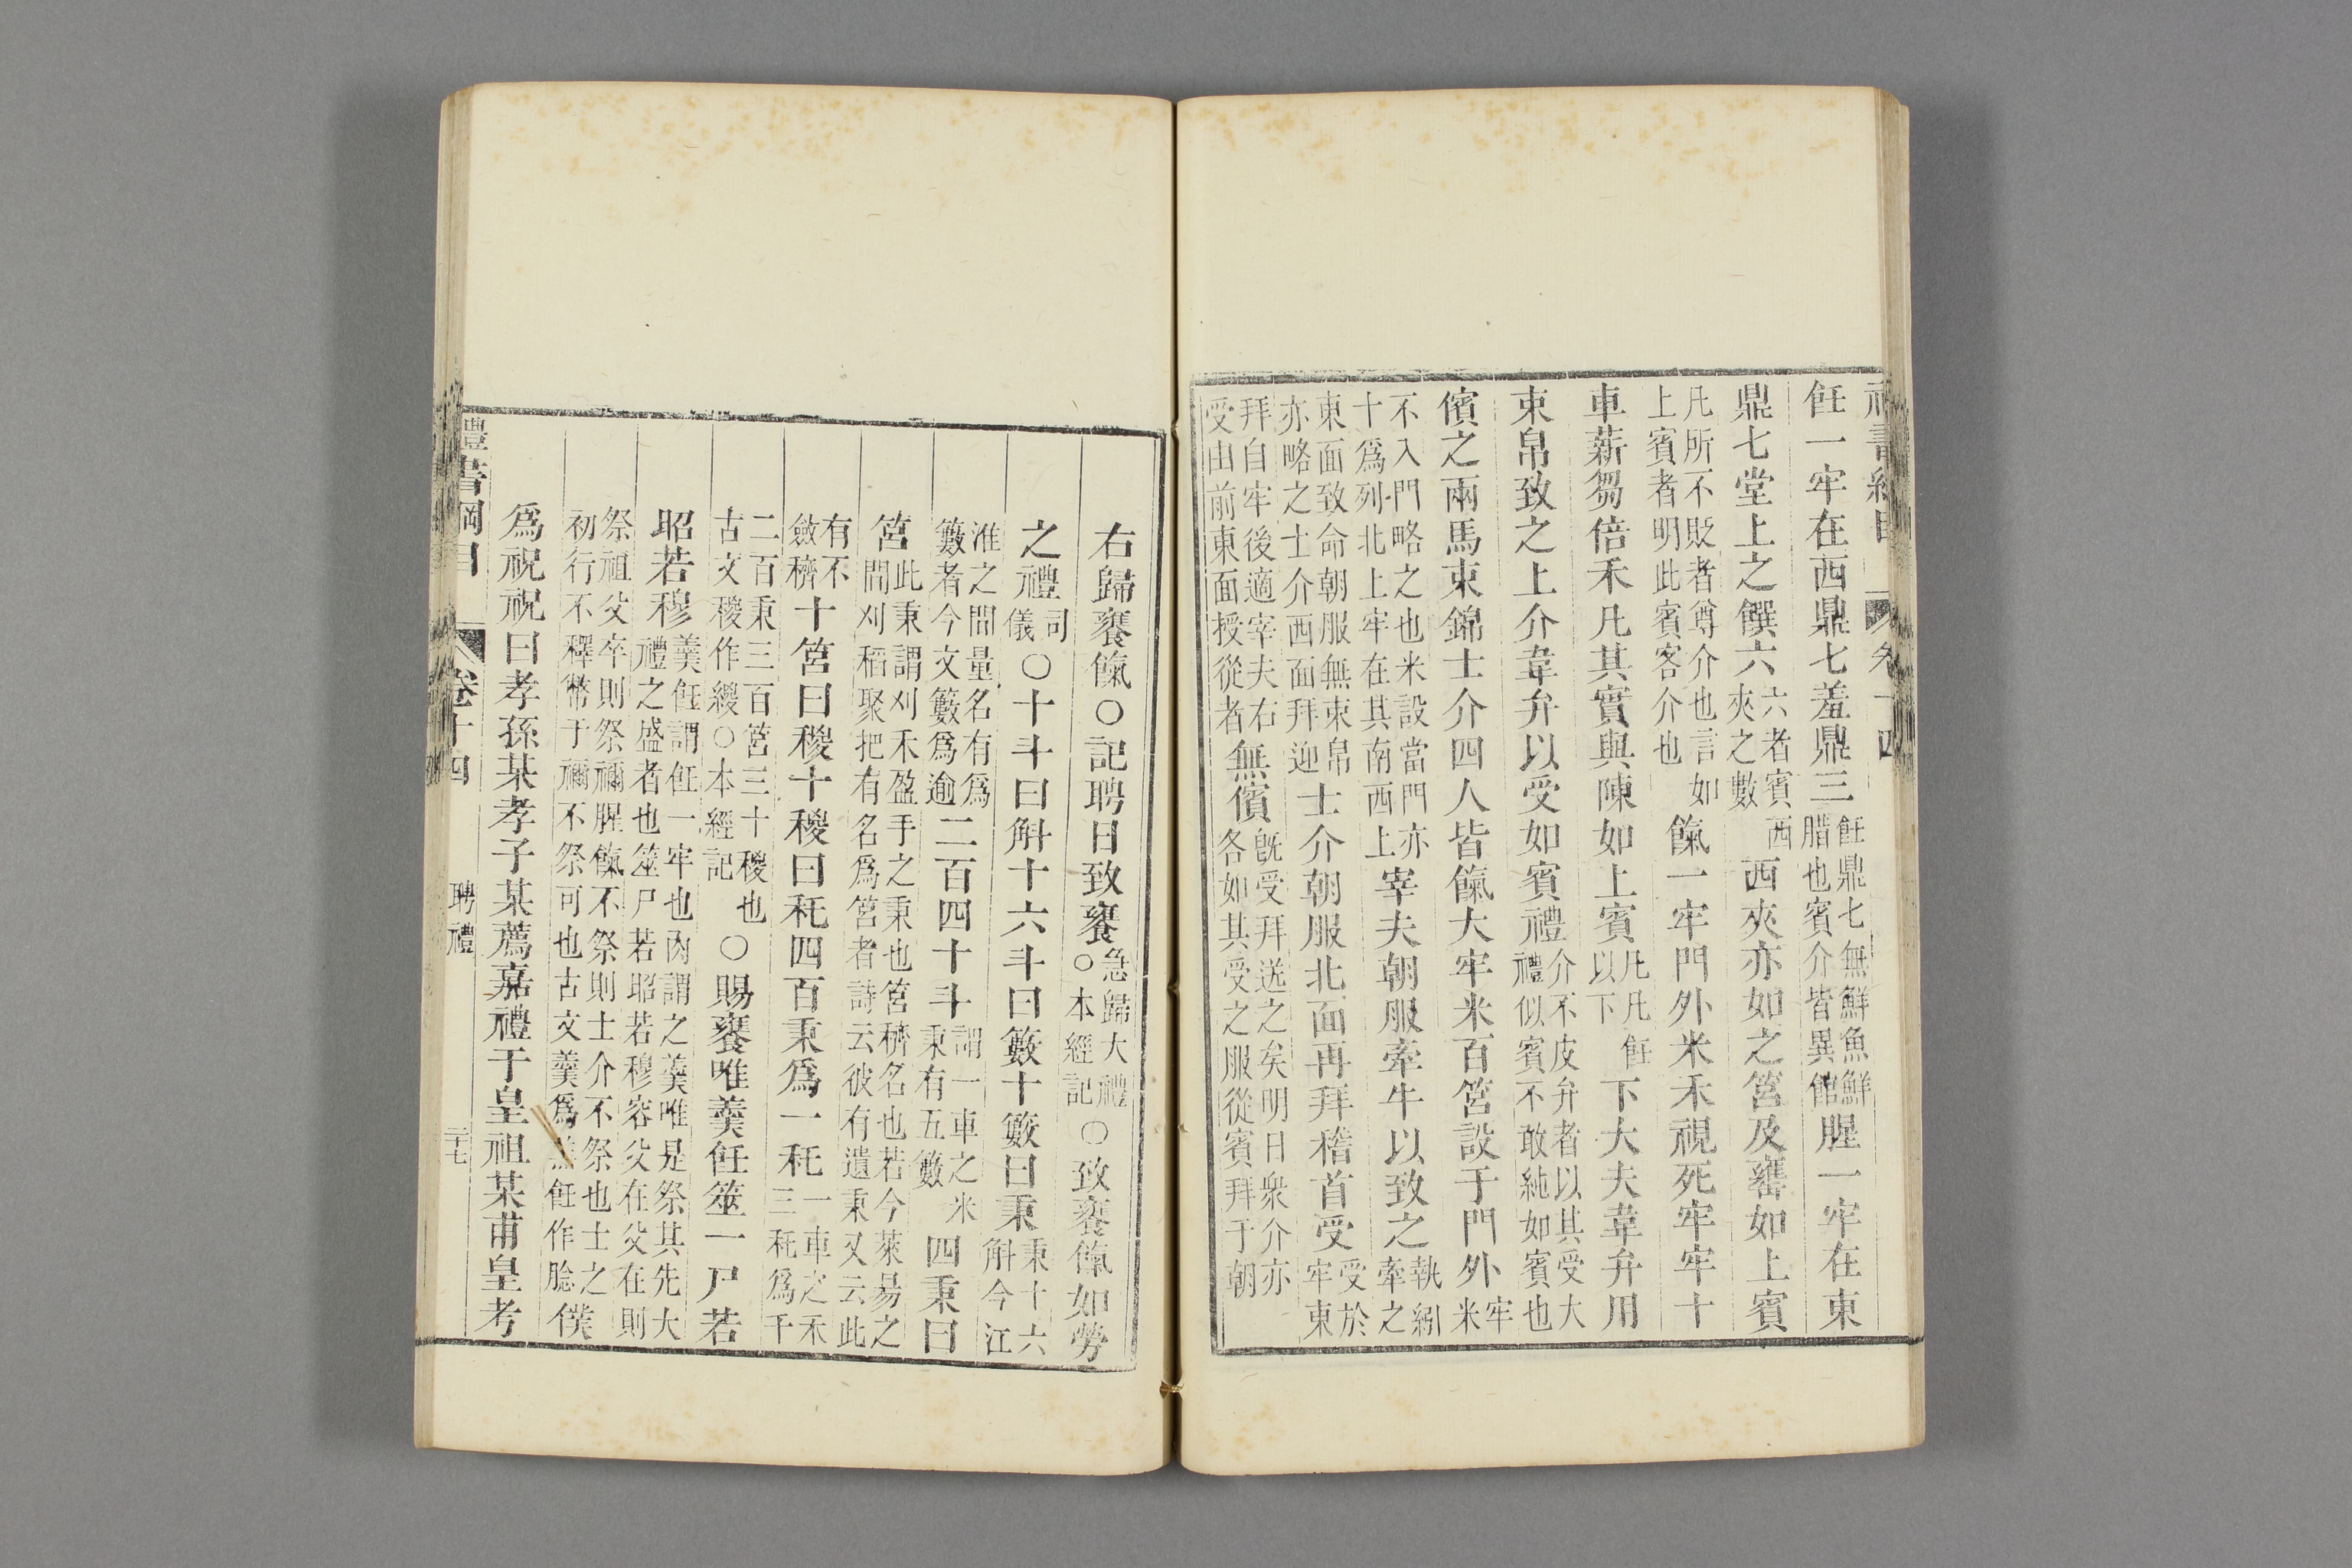 飪一牢在西鼎七羞鼎三飪鼎七無鮮魚鮮腊也賓介皆異館腥一牢在東
鼎七堂上之饌六六者賓西夾之數西夾亦如之筥及罋如上賓
凡所不貶者尊介也言如上賓者明此賓客介也餼一牢門外米禾視死牢牢十
車薪芻倍禾凡其實與陳如上賓凡凡飪以下下大夫韋弁用
束帛致之上介韋弁以受如賓禮介不皮弁者以其受大禮似賓不敢純如賓也
儐之兩馬束錦士介四人皆餼大牢米百筥設于門外牢米
不入門略之也米設當門亦十爲列北上牢在其南西上宰夫朝服牽牛以致之執紖牽之
東面致命朝服無束帛亦略之士介西面拜迎士介朝服北面再拜稽首受受於牢東
拜自牢後適宰夫右受由前東面授從者無儐旣受拜送之矣明日衆介亦各如其受之服從賓拜于朝
右歸饔餼○記聘日致饔急歸大禮○本經記○致饔餼如勞
之禮司儀○十斗曰斛十六斗曰籔十籔曰秉秉十六斛今江
淮之間量名有爲籔者今文籔爲逾二百四十斗謂一車之米秉有五籔四秉曰
筥此秉謂刈禾盈手之秉也筥穧名也若今萊易之間刈稻聚把有名爲筥者詩云彼有遺秉又云此
有不斂穧十筥曰稯十稯曰秅四百秉爲一秅一車之禾三秅爲千
二百秉三百筥三十稯也古文稯作緵○本經記○賜饔唯羹飪筮一尸若
昭若穆羹飪謂飪一牢也肉謂之羹唯是祭其先大禮之盛者也筮尸若昭若穆容父在父在則
祭祖父卒則祭禰腥餼不祭則士介不祭也士之初行不釋幣于禰不祭可也古文羹爲羔飪作腍僕
爲祝祝曰孝孫某孝子某薦嘉禮于皇祖某甫皇考
禮書綱目 卷十四 聘禮 二十七